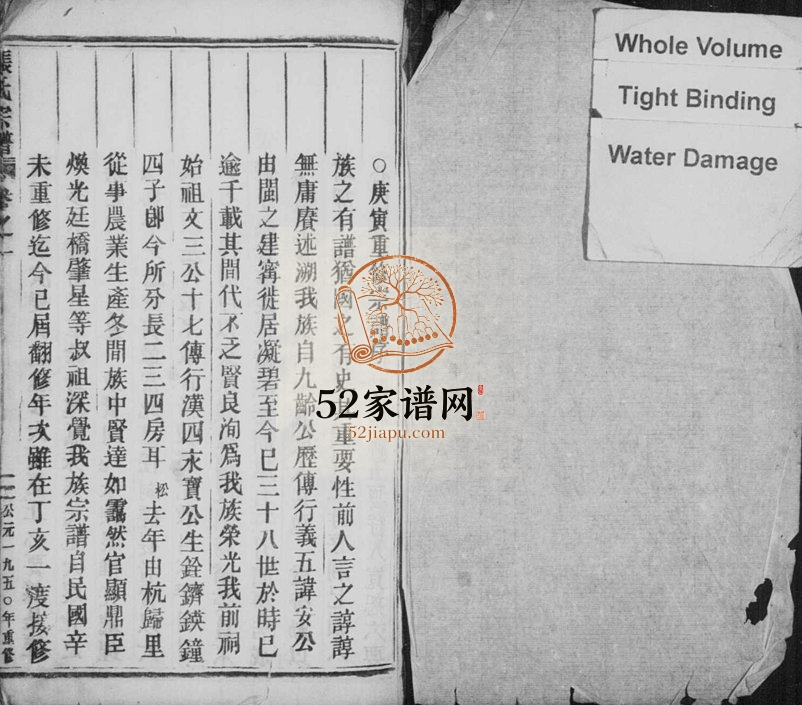 Whole Volume
Tight Binding
Water Damage
〇庚寅重修宗譜序
族之有譜猶國之有史其重要性前人言之諄諄
無庸賡述溯我族自九齡公歷傳行義五諱安公
由閩之建甯徙居凝碧至今已三十八世於時已
逾千載其間代不乏賢良洵爲我族榮光我前祠
始祖文三公十七傳行漢四永寶公生銓鑇鍈鐘
四子卽今所分長二三四房耳 松 去年由杭歸里
從事農業生產冬間族中賢達如靄然官顯鼎臣
煥光廷橋肇星等叔祖深覺我族宗譜自民國辛
未重修迄今已屆翻修年次雖在丁亥一度接修
張氏宗譜 卷之一
公元一九五〇年重修
52家谱网
52jiapu.com